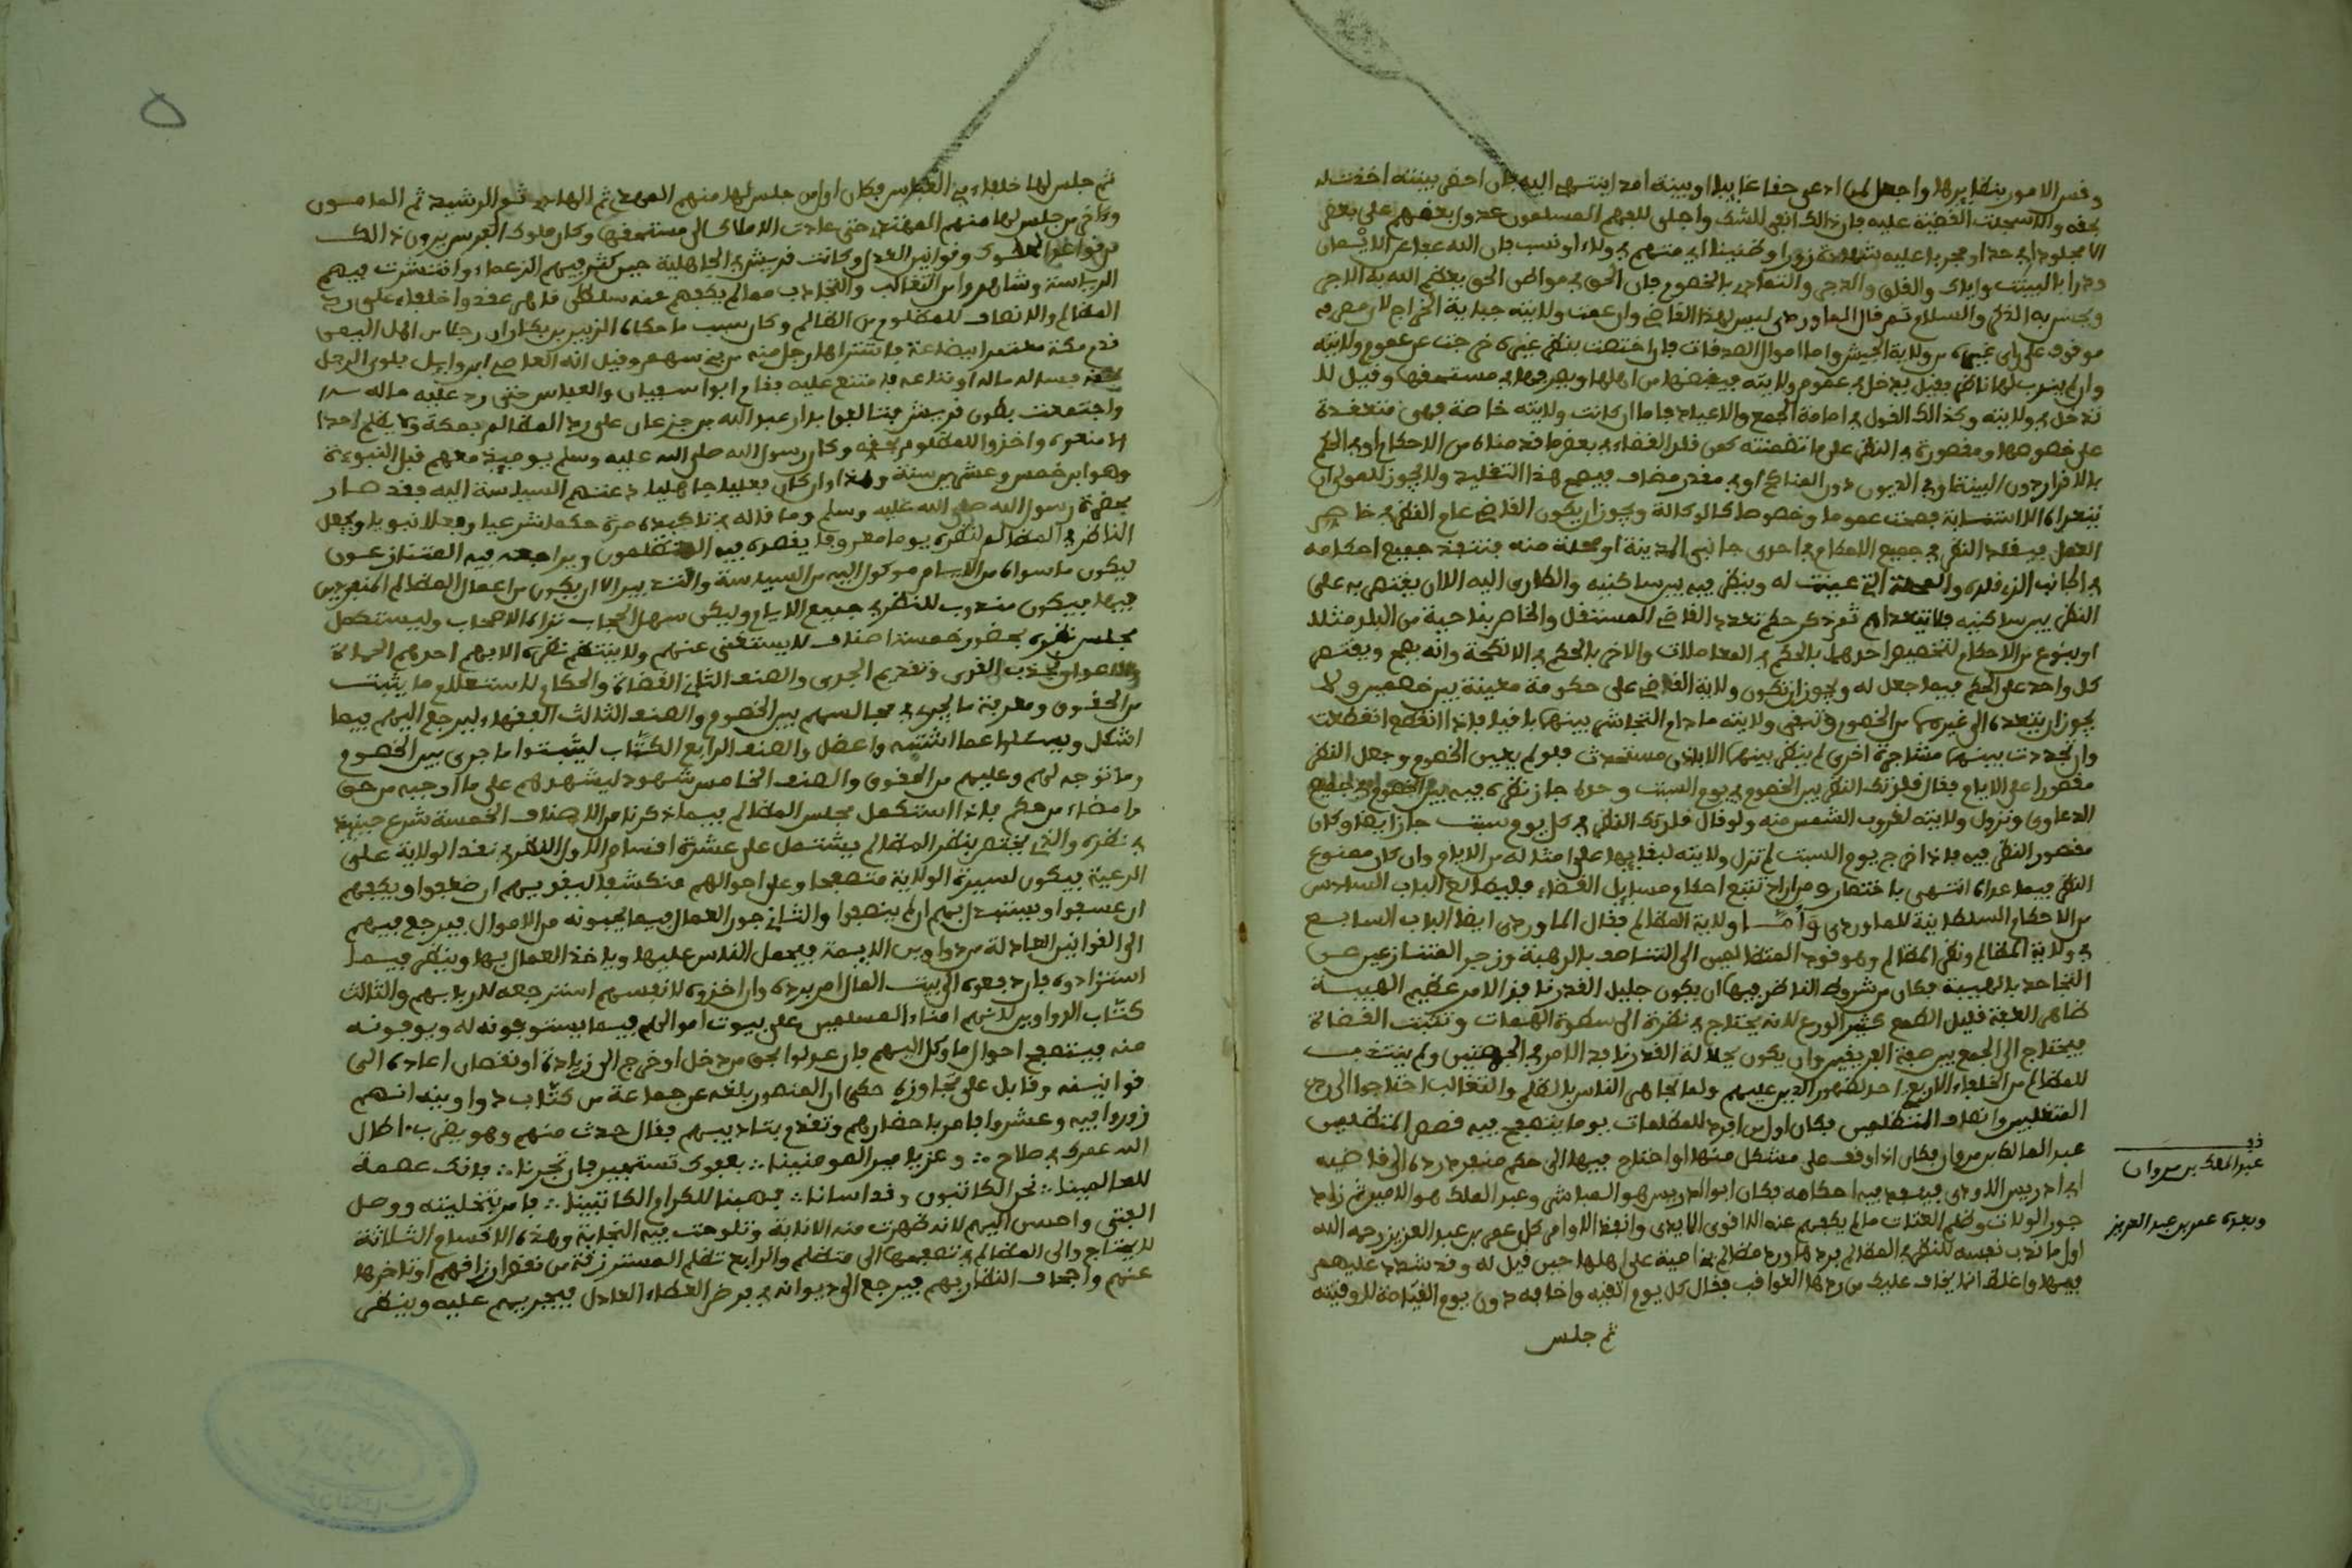 وقس الامور بنظايرها واجعل لمن ادعى حقا غايبا او بينة امدا ينتهي اليه فان احضر بينته اخذت له
بحقه والا سجلت القضية عليه فان ذالك انفى للشك واجلى للعمى المسلمون عدول بعضهم على بعض
الا مجلودا في حد او مجربا عليه شهادة زور او ظنينا اي متهم في ولاء او نسب فان الله عفا عن الايمان
ودرا بالبينت واياك والقلق والضجر والتعادي بالخصوم فان الحق في مواطن الحق يعظم الله به الاجر
ويحسن به الذكر والسلام ثم قال الماوردي ليس لهذا القاضي وان عمت ولايته جباية الخراج لان مصرفه
موقوف على راي غيره من ولاية الجيش واما اموال الصدقات فان اختصت بنظر غيره خرجت عن عموم ولايته
وان لم يندب لها ناظر فقيل يدخل في عموم ولايته فيقبضها من اهلها ويصرفها في مستحقها وقيل لا
تدخل في ولايته وكذالك القول في امامة الجمع والاعياد فاما ان كانت ولايته خاصة فهي منعقدة
على خصوصها ومقصورة في النظر على ما تضمنته كمن قلد القضاء في بعض ما قدمناه من الاحكام او في الحكم
بالاقرار دون البينة او في الديون دون المناكح او في مقدر مضاف فيصح هذا التقليد ولا يجوز للمولى ان
يتعداه لانها استنابة فصحت عموما وخصوصا كالوكالة ويجوز ان يكون القاضي عام النظر خاص
العمل فيقلد النظر في جميع الاحكام في احدى جانبي المدينة او محلة منه فتنفذ جميع احكامه
في الجانب الذي قلده والمحلة التي عينت له وينظر فيه بين ساكنيه والطاري اليه الا ان يقتصر به على
النظر بين ساكنيه فلا يتعداهم ثم ذكر حكم تعدد القاضي المستقل والخاص بناحية من البلد مثلا
او بنوع من الاحكام لتخصيص احدهما بالحكم في المعاملات والاخر بالحكم في الانكحة وانه يصح ويقتصر
كل واحد على الحكم فيما جعل له ويجوز ان تكون ولاية القاضي على حكومة معينة بين خصمين ولا
يجوز ان يتعداه الى غيرهما من الخصوم وتبقى ولايته ما دام التشاجر بينهما باقيا فاذا انقطع انقطعت
وان تجددت بينهما مشاجرة اخرى لم ينظر بينهما الا باذن مستحدث فلو لم يعين الخصوم وجعل النظر
مقصورا على الايام فقال قلدتك النظر بين الخصوم في يوم السبت وحده جاز نظره فيه بين الخصوم في جميع
الدعاوي وتزول ولايته لغروب الشمس منه ولو قال قلدتك النظر في كل يوم سبت جاز ايضا وكان
مقصور النظر فيه فاذا خرج يوم السبت لم تزل ولايته لبقايها على امثاله من الايام وان كان ممنوع
النظر فيما عداه انتهى باختصار ومن اراد تتبع احكام ومسايل القضاء فليطالع الباب السادس
من الاحكام السلطانية للماوردي وأمّـا ولاية المظالم فقال الماوردي ايضا الباب السابع
في ولاية المظالم ونظر المظالم وهو قود المتظالمين الى التناصف بالرهبة وزجر المتنازعين عن
التجاحد بالهيبة فكان من شروط الناظر فيها ان يكون جليل القدر نافذ الامر عظيم الهيبة
ظاهر العفة قليل الطمع كثير الورع لانه يحتاج في نظره الى سطوة الحماة وتثبت القضاة
فيحتاج الى الجمع بين صفة الفريقين وان يكون بجلالة القدر نافذ الامر في الجهتين ولم ينتدب
للمظالم من الخلفاء الاربعة احد لظهور الدين عليهم ولما تجاهر الناس بالظلم والتغالب احتاجوا الى ردع
المتغلبين وانصاف المتظلمين فكان اول من افرد للظلامات يوما يتصفح فيه قصص المتظلمين
عبد الملك بن مروان فكان اذا وقف على مشكل منها او احتاج فيها الى حكم منفرد رده الى قاضيه
ابي ادريس الاودي فينفذ فيه احكامه فكان ابو ادريس هو المباشر وعبد الملك هو الامر ثم زاد
جور الولات وظلم العتات ما لم يكفهم عنه الا اقوى الايدي وانفذ الاوامر كل عمر بن عبد العزيز رحمه الله
اول ما ندب نفسه للنظر في المظالم فردها ورد مظالم بني امية على اهلها حين قيل له وقد شدد عليهم
فيها واغلظ انا نخاف عليك من ردها العواقب فقال كل يوم اتقيه واخافه دون يوم القيامة لا وقيته
ثم جلس
عبد الملك بن مروان
وبعده عمر بن عبد العزيز
ثم جلس لها خلفاء بني العباس فكان اول من جلس لها منهم المهدي ثم الهادي ثم الرشيد ثم المامون
واخر من جلس لها منهم المهتدي حتى عادت الاملاك الى مستحقها وكان ملوك الفرس يرون ذالك
من قواعد الملوك وقوانين العدل وكانت قريش في الجاهلية حين كثر فيهم الزعماء وانتشرت فيهم
الرياسة وشاهدوا من التغالب والتجاذب ما لم يكفهم عنه سلطان قاهر عقدوا حلفا على رد
المظالم والانصاف للمظلوم من الظالم وكان سبب ما حكاه الزبير بن بكار ان رجلا من اهل اليمن
قدم مكة معتمرا ببضاعة فاشتراها رجل منه من بني سهم وقيل انه العاصي ابن وايل فلوى الرجل
بحقه فساله ماله او متاعه فامتنع عليه فقام ابو سفيان والعباس حتى رد عليه ماله
واجتمعت بطون قريش فتحالفوا بدار عبد الله بن جدعان على رد المظالم بمكة ولا يظلم احدا
الا منعوه واخذوا للمظلوم بحقه وكان رسول الله صلى الله عليه وسلم يوميذ معهم قبل النبوءة
وهو ابن خمس وعشرين سنة وهذا وان كان فعلا جاهليا دعتهم السياسة اليه فقد صار
بحضرة رسول الله صلى الله عليه وسلم وما قاله في تاكيده مرة حكما شرعيا وفعلا نبويا ويجعل
الناظر في المظالم لنظره يوما معروفا يقصده فيه المتظلمون ويراجعه فيه المتنازعون
ليكون ما سواه من الايام موكول اليه من السياسة والتدبير الا ان يكون من اعمال المظالم المنفردين
فيها فيكون مندوب للنظر في جميع الايام وليكن سهل الحجاب نزه الاصحاب وليستكمل
مجلس نظره بحضور خمسة اصناف لا يستغنى عنهم ولا ينتظم نظره الا بهم احدهم الحماة
والاعوان لجذب القوي وتقويم الجري والصنف الثاني القضاة والحكام لاستعلام ما يثبت
من الحقوق ومعرفة ما يجري في مجالسهم بين الخصوم والصنف الثالث الفقهاء ليرجع اليهم فيما
اشكل ويسالوا عما اشتبه واعضل والصنف الرابع الكتّاب ليثبتوا ما جرى بين الخصوم
وما توجه لهم وعليهم من الحقوق والصنف الخامس شهود ليشهدهم على ما اوجبه من حق
وامضاه من حكم فاذا استكمل مجلس المظالم بيما ذكرنا من الاصناف الخمسة شرع حينيذ
في نظره والذي يختص بنظر المظالم يشتمل على عشرة اقسام الاول النظر في تعدي الولاية على
الرعية فيكون لسيرة الولاية متصفحا وعلى احوالهم متكشفا ليقويهم ان ضعفوا ويكفهم
ان عسفوا ويستبدل بهم ان لم ينصفوا والثاني جور العمال فيما يجبونه من الاموال فيرجع فيهم
الى القوانين العادلة من دواوين الايمة فيحمل الناس عليها وياخذ العمال بها وينظر فيما
استزادوه فان دفعوه الى بيت المال امر برده وان اخذوه لانفسهم استرجعه لاربابهم والثالث
كتّاب الدواوين لانهم امناء المسلمين على بيوت اموالهم فيما يستوفونه له ويوفونه
منه فيتصفح احوال ما وكل اليهم فان عدلوا بحق من دخل او خرج الى زيادة او نقصان اعاده الى
قوانينه وقابل على تجاوزه حكى ان المنصور بلغه عن جماعة من كتّاب دواوينه انهم
زوروا فيه وعشروا فامر باحضارهم وتقدم بتاديبهم فقال حدث منهم وهو يضرب اطال
الله عمرك في صلاح ∴ وعز يا امير المومنينا ∴ بعفوك نستجير فان تجرنا ∴ فانك عصمة
للعالمينا ∴ نحن الكاتبون وقد اسانا ∴ فهبنا للكرام الكاتبينا ∴ فامر بتخليتهم ووصل
الفتى واحسن اليه لانه ظهرت منه الامانة وتلوحت فيه النجابة وهذه الاقسام الثلاثة
لا يحتاج والي المظالم في تصفحها الى متظلم والرابع تظلم المسترزقة من نقص ارزاقهم او تاخرها
عنهم واجحاف النظار بهم فيرجع الى ديوانه في فرض العطاء العادل فيجريهم عليه وينظر